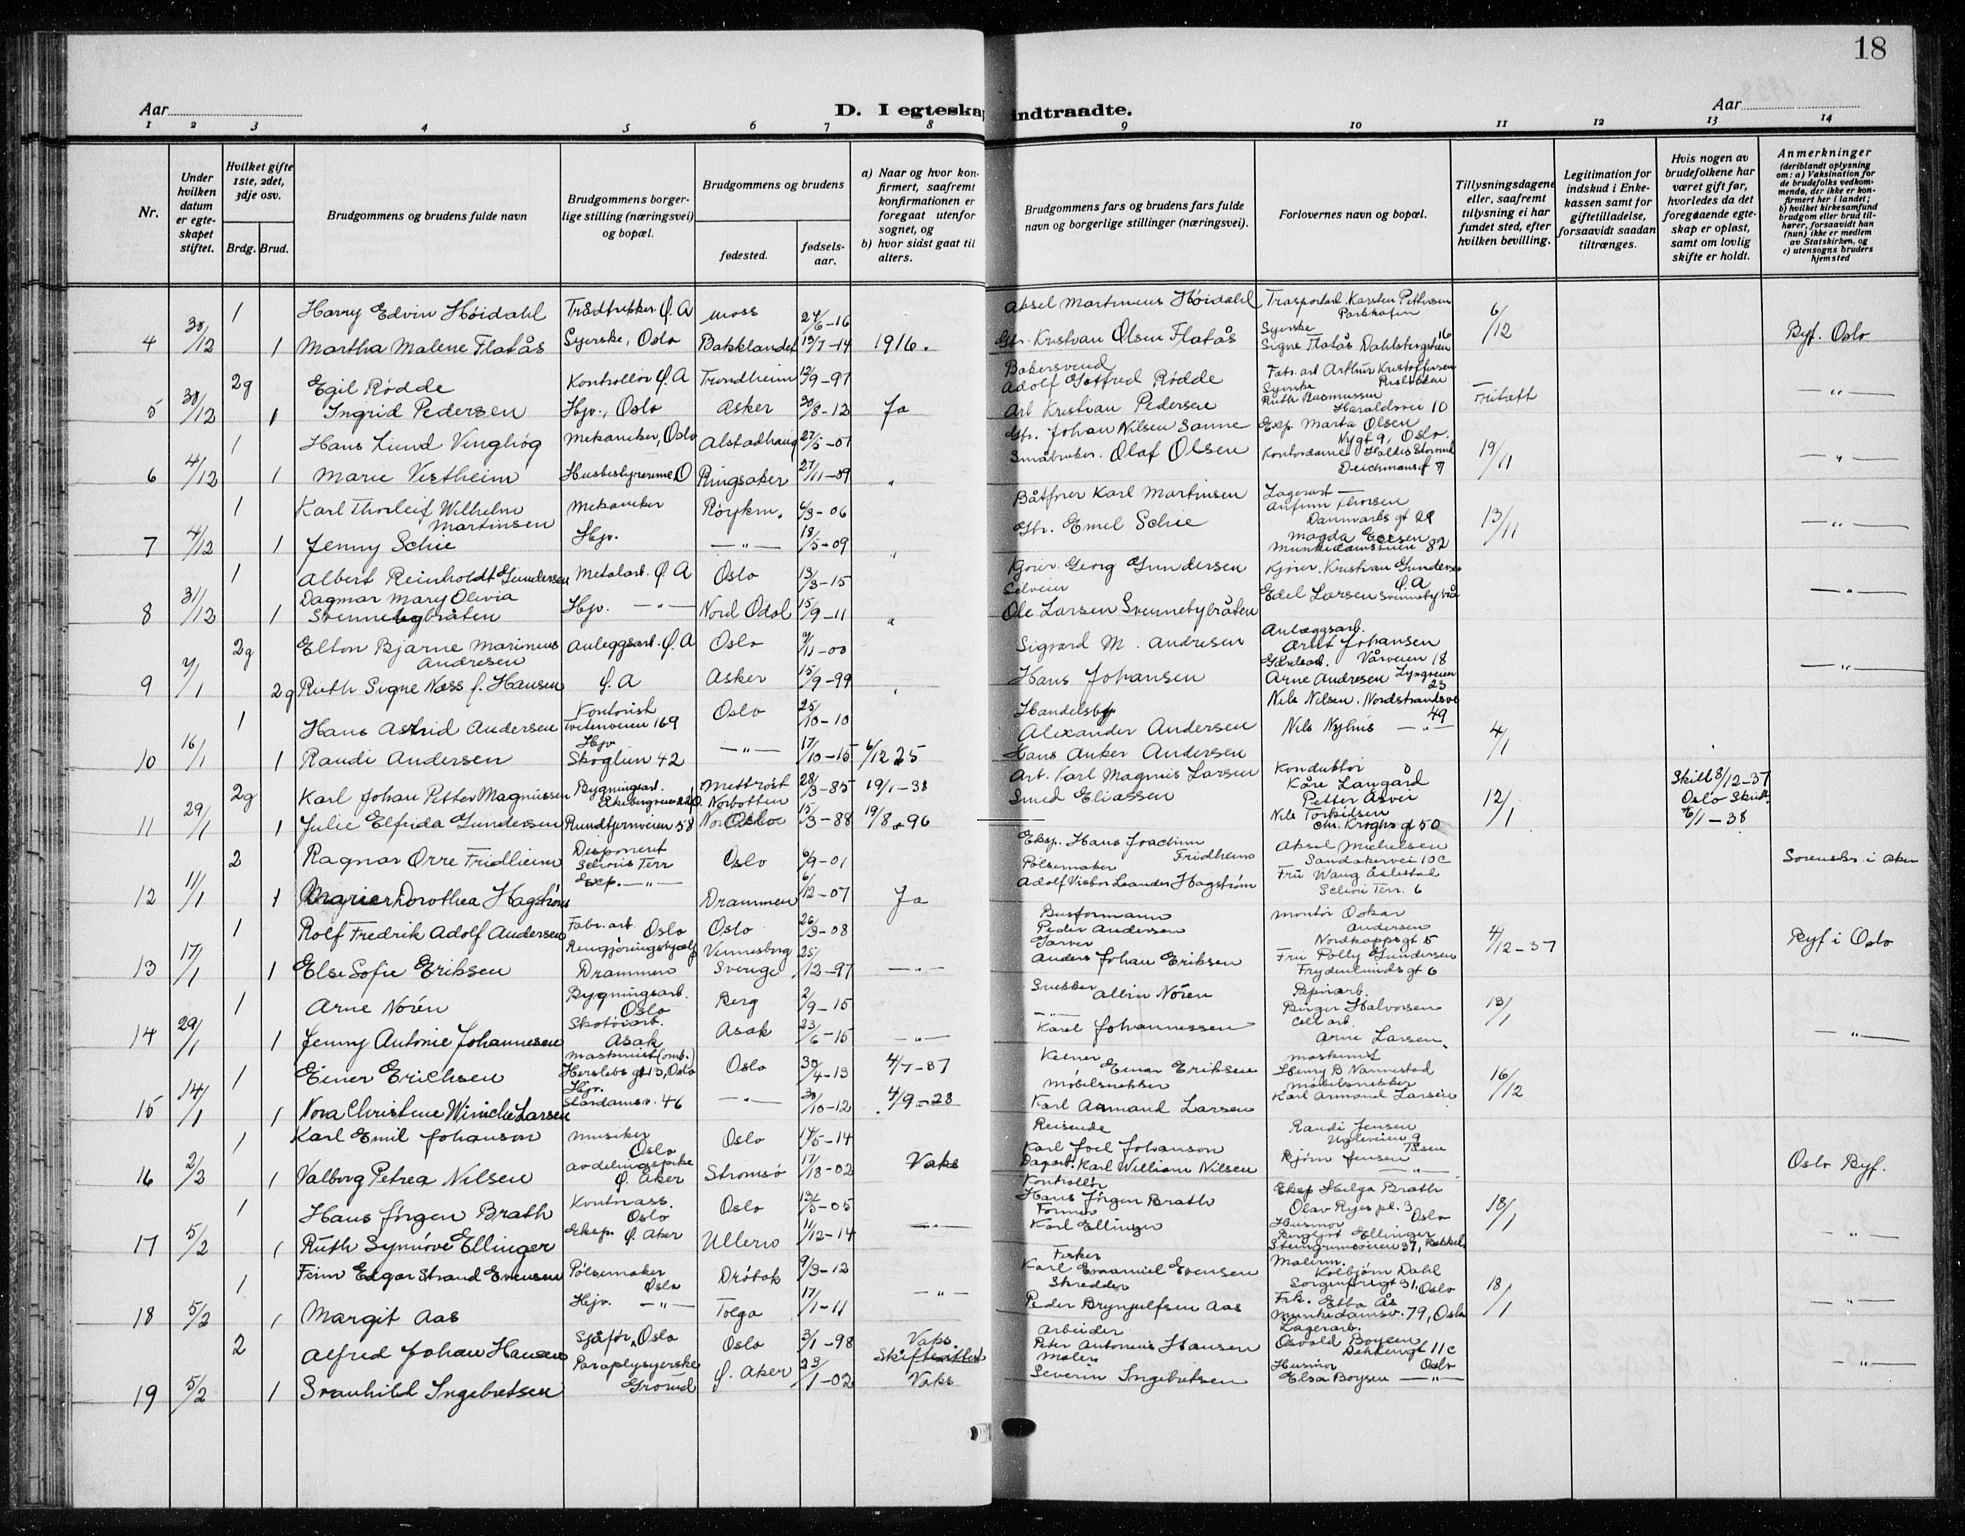 18
Aar
D. I egteskap indtraadte.
Aar
1 2 3 4 5 6 7 8 9 10 11 12 13 14
Nr.
Under hvilken datum er egteskapet stiftet.
Hvilket gifte 1ste, 2det, 3dje osv.
Brdg. Brud.
Brudgommens og brudens fulde navn
Brudgommens borgerlige stilling (næringsvei) og bopæl.
Brudgommens og brudens
fødested.
fødselsaar.
a) Naar og hvor konfirmert, saafremt konfirmationen er foregaat utenfor sognet, og
b) hvor sidst gaat til alters.
Brudgommens fars og brudens fars fulde navn og borgerlige stillinger (næringsvei).
Forlovernes navn og bopæl.
Tillysningsdagene eller, saafremt tillysning ei har fundet sted, efter hvilken bevilling.
Legitimation for indskud i Enkekassen samt for giftetilladelse, forsaavidt saadan tiltrænges.
Hvis nogen av brudefolkene har været gift før, hvorledes da det foregaaende egteskap er opløst, samt om lovlig skifte er holdt.
Anmerkninger
(deriblandt oplysning om: a) Vaksination for de brudefolks vedkommende, der ikke er konfirmert her i landet;
b) hvilket kirkesamfund brudgom eller brud tilhører, forsaavidt han (hun) ikke er medlem av Statskirken, og
c) utensogns bruders hjemsted
1 Harry Edvin Høidahl Ø. A Moss 24/6-16 Aksel Martinius Høidahl Karsten Pettersen 6/12
4 30/12 1 Martha Malene Flatås Syerske, Oslo Bakklandet 19/7-14 1916. Gbr. Kristian Olsen Flatås Syerske Signe Flatås Dahlsbergstien 16 Byf. Oslo
2g Egil Rødde Kontrollør Ø. A Trondheim 12/9-97 Bakersvend Adolf Gotfred Rødde Fabr. arb Arthur Kristoffersen
5 30/12 1 Ingrid Pedersen Hjv., Oslo Asker 30/8-12 Ja Arb Kristian Pedersen Syerske Ruth Rasmussen Haraldsvei 10 Fritatt —"—
1 Hans Lund Vinghøg Mekaniker, Oslo Alstadhaug 27/5-01 Gbr. Johan Nilsen Sanne Eksp. Marta Olsen Nygt 9, Oslo.
6 4/12 1 Marie Vestheim Husbestyrerinne, O Ringsaker 27/11-09 " Småbruker. Olaf Olsen Kontordame Deichmansgt 7 19/11 —"—
1 Karl Thorleif Wilhelm Martinsen Mekaniker Røykm. 6/3-06 Båtfører Karl Martinsen Lagerarb Danmarks gt 29
7 4/12 1 Jenny Schie Hjv. —"— 18/5-09 " Gbr. Emil Schie Magda Munkedamsveien 82 13/11 —"—
1 Albert Reinholdt Gundersen Metalarb. Ø. A Oslo 13/3-15 Kjører. Georg Gundersen Kjører. Kristian Gundersen Ø. A
8 31/12 1 Dagmar Mary Olivia Svennebybråten Hjv. —"— Nord Odal 15/9-11 " Selveier Ole Larsen Svennebybråten Edel Larsen —"—
2g Elton Bjarne Marinius Andresen Anleggsarb. Ø. A Oslo 9/11-00 Sigvard M. Andresen Anlæggsarb. Arnt Johansen Vårveien 18
9 7/1 2g Ruth Signe Næss f. Hansen Ø. A Asker 15/9-99 " Hans Johansen Arne Andresen Lyngveien 23 —"—
1 Hans Astrid Andersen Kontorist Tvetenveien 169 Oslo 25/10-10 Handelsb. Alexander Andersen Nils Nilsen. Nordstrandsv 49
10 16/1 1 Randi Andersen Hjv Skoglun 42 —"— 17/10-15 6/12 25 Hans Anker Andersen Nils Nyhus —"— 4/1
2g Karl Johan Petter Magnussen Bygningsarb. 28/3-85 19/1-38 Arb. Karl Magnus Larsen Konduktør Kåre Langård Skilt 8/12-37
11 29/1 1 Julie Elfrida Gundersen Rundtjernveien 58 15/3-88 19/8-96 Smed Eliassen Petter Åsvei Nils Torkilsen Chr. Kroghs gt 50 12/1 Oslo Skift. 6/1-38
2 Ragnar Orre Fridheim Disponent Selvis Terr Oslo 6/9-01 Eksp. Hans Joachim Fridheim Aksel Michelsen Sandakervei 10c
12 11/1 1 Dorothea Hagstrøm Exp. —"— Drammen 6/12-07 Ja Pølsemaker Adolf Victor Leander Hagstrøm Fru Wang Terr. 6 Sorenskr. i Aker
1 Rolf Fredrik Adolf Andersen Fabr. arb Oslo Oslo 26/3-08 Peder Andersen Montør Oskar Andersen Nordkappgt 5
13 17/1 1 Else Sofie Eriksen Rengjøringshjælp Drammen Vennesborg Sverige 25/12-97 —"— Garver Anders Johan Eriksen Fru Polly Gundersen Frydenlunds gt 6 4/12-37 Byf i Oslo
1 Arne Norén Bygningsarb. Oslo Berg 2/9-15 Snekker Albin Norén Papirarb. Birger Halvorsen
14 29/1 1 Jenny Antonie Johannesen Skotøiarb. Asak Asak 23/6-15 —"— —"— Karel Johannessen Cell arb. Arne Larsen. 13/1 —"—
1 Einer Erichsen Maskinist (omb.) Herslebs gt 13, Oslo Oslo 30/4-13 4/7-37 Kelner Einar Eriksen Maskinist Henry B Nannestad
15 14/1 1 Nora Christine Winiche Larsen Hjv. Stordamsv. 46 —"— 30/10-12 4/9-28 Møbelsnekker Karl Armand Larsen Møbelsnekker Karl Armand Larsen 16/12
1 Karl Emil Johanson Musiker Oslo Oslo 14/5-14 Reisende Karl Joel Johanson Randi Jensen Ugleveien 9 Tåsen
16 2/2 1 Valborg Petrea Nilsen Avdelingspike Ø. Aker Strømsø 17/18-02 Vaks Dagarb. Karl William Nilsen Bjørn Jensen —"— Oslo Byf.
1 Hans Jørgen Brath Kontorass. Oslo Oslo 13/5-05 Kontrollør Hans Jørgen Brath Eksp Helga Brath Olav Ryes pl. 3 Oslo
17 5/2 1 Ruth Synnøve Ellinger Eksp. Ø. Aker Ullern 11/12-14 —"— Former Karl Ellinger Husmor Bergljot Ellinger 37, Bekkel. 18/1 —"—
1 Finn Edgar Strand Evensen Pølsemaker Oslo Drøbak 9/3-12 Fisker Karl Emanuel Evensen Malerm. Kolbjørn Dahl Sorgenfrigt 31, Oslo
18 5/2 1 Margit Aas Hjv. —"— Tolga 17/1-11 —"— Skredder Peder Brynjulfsen Aas Frk. Ebba Ås Munkedamsv. 79, Oslo 18/1 —"—
2 Alfred Johan Hansen Sjåfør, Oslo Oslo 3/1-98 Vaks. Skifteattest Arbeider Peter Antonius Hansen Lagerarb. Osvald Boysen Dekkengt 11c Oslo
19 5/2 1 Svanhild Ingebretsen Paraplysyerske Grorud Ø. Aker 23/1-02 Vaks Maler Severin Ingebretsen Husmor Elsa Boysen —"— —"—